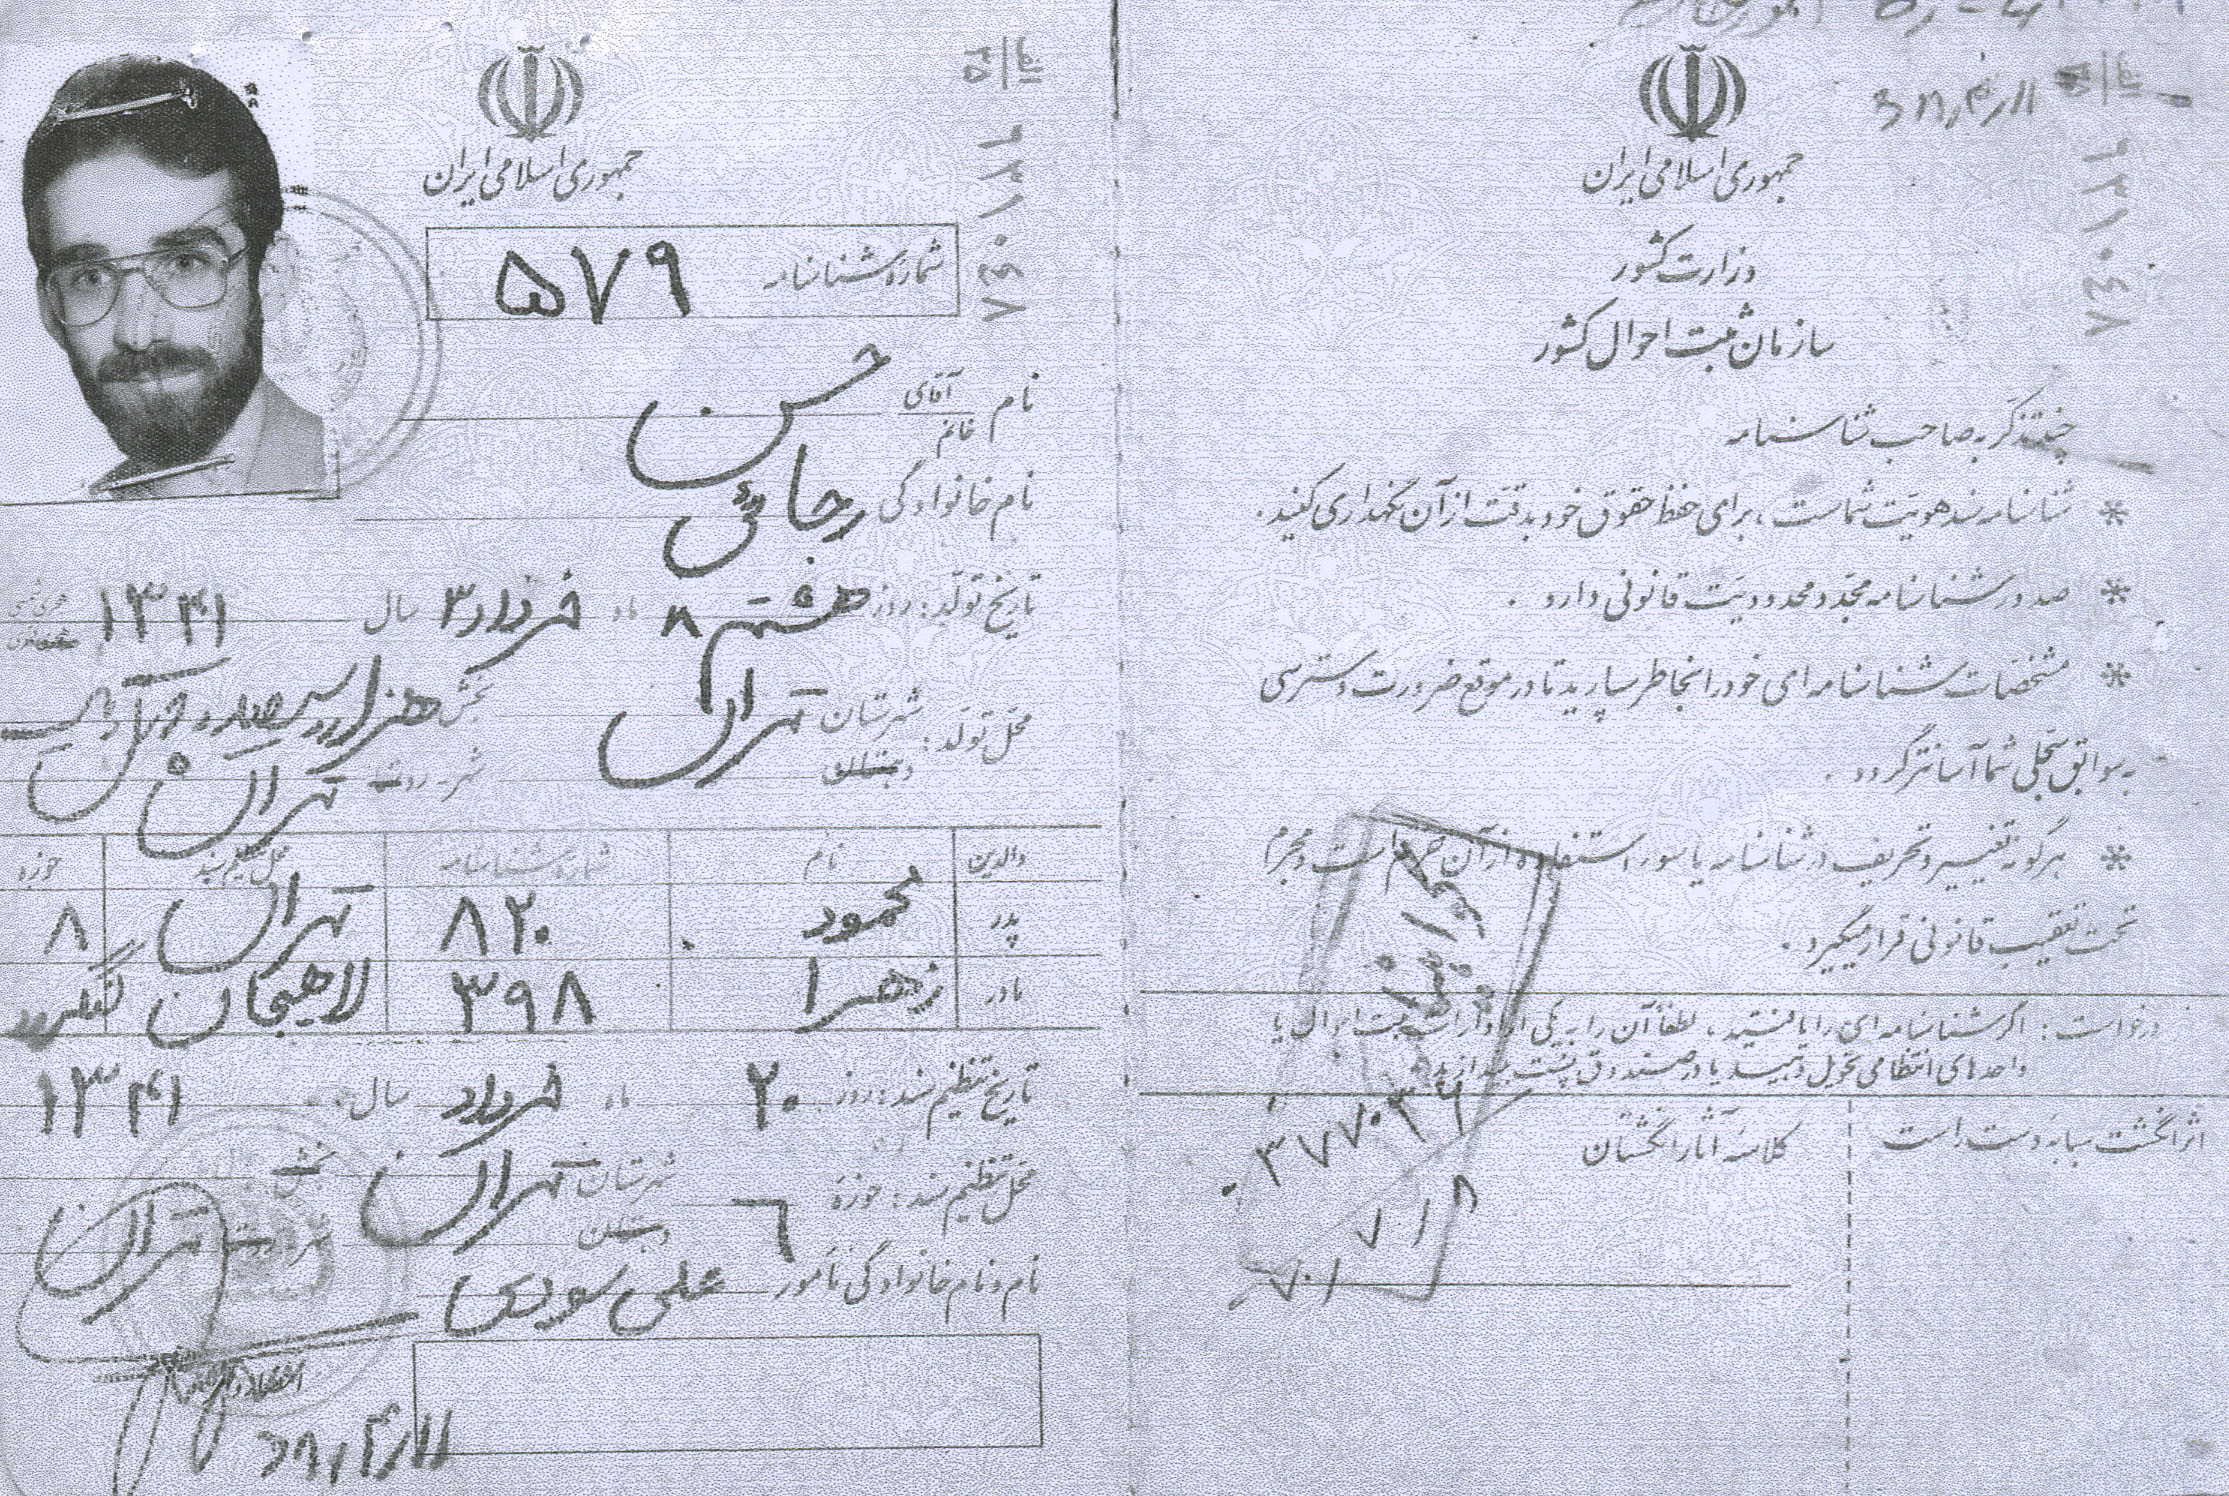 جمهوری اسلامی ایران
وزارت کشور
سازمان ثبت احوال کشور
الف
٦٣١٠٤٨
چند تذکر به صاحب شناسنامه
* شناسنامه سند هویت شماست ، برای حفظ حقوق خود بدقت از آن نگهداری کنید .
* صدور شناسنامه مجدد محدودیت قانونی دارد .
* مشخصات شناسنامه ای خود را بخاطر بسپارید تا در موقع ضرورت دسترسی
به سوابق سجلی شما آسانتر گردد .
* هرگونه تغییر و تحریف در شناسنامه یا سوء استفاده از آن جرم است و مجرم
تحت تعقیب قانونی قرار میگیرد .
درخواست : اگر شناسنامه ای را یافتید ، لطفاً آن را به یکی از ادارات ثبت احوال یا
واحدهای انتظامی تحویل دهید یا در صندوق پست بیندازید
اثر انگشت سبابه دست راست
کلاسه آثار انگشتان
جمهوری اسلامی ایران
الف ٢٥
٦٣١٠٤٨
شماره شناسنامه ۵۷۹
نام آقای خانم حسن
نام خانوادگی رجائی
تاریخ تولد : روز هشتم ۸ ماه خرداد ۳ سال ۱۳۴۱ هجری شمسی
هزار و سیصد و چهل و یک
محل تولد : شهرستان تهران بخش
شهر تهران
والدین نام شماره شناسنامه محل تنظیم سند حوزه
پدر محمود ۸۲۰ تهران ۸
مادر زهرا ۳۹۸ لاهیجان
تاریخ تنظیم سند : روز ۲۰ ماه خرداد سال ۱۳۴۱
محل تنظیم سند : حوزه ٦ شهرستان تهران بخش
تهران
نام و نام خانوادگی مأمور علی